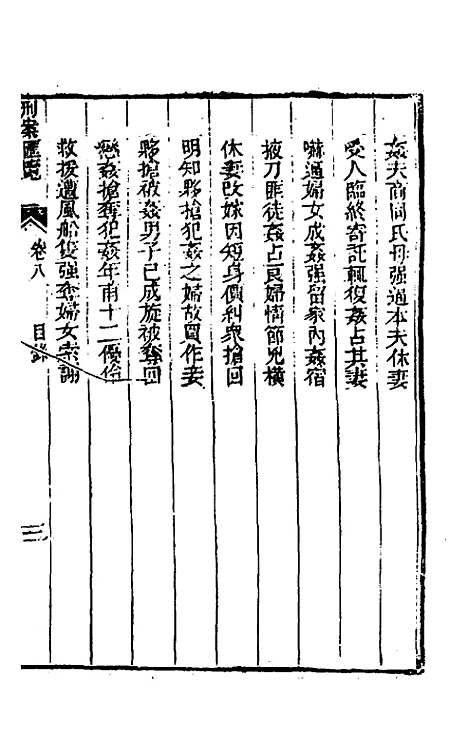 姦夫商同氏母強逼本夫休妻
受人臨終寄託輒復姦占其妻
嚇逼婦女成姦强留家內姦宿
掖刀匪徒姦占良婦情節兇橫
休妻改嫁因短身價糾衆搶回
明知夥搶犯姦之婦故買作妾
夥搶被姦男子已成旋被奪回
戀姦搶奪犯姦年甫十二優伶
救援遭風船隻强奪婦女索謝
刑案匯覽 卷八 目錄 三